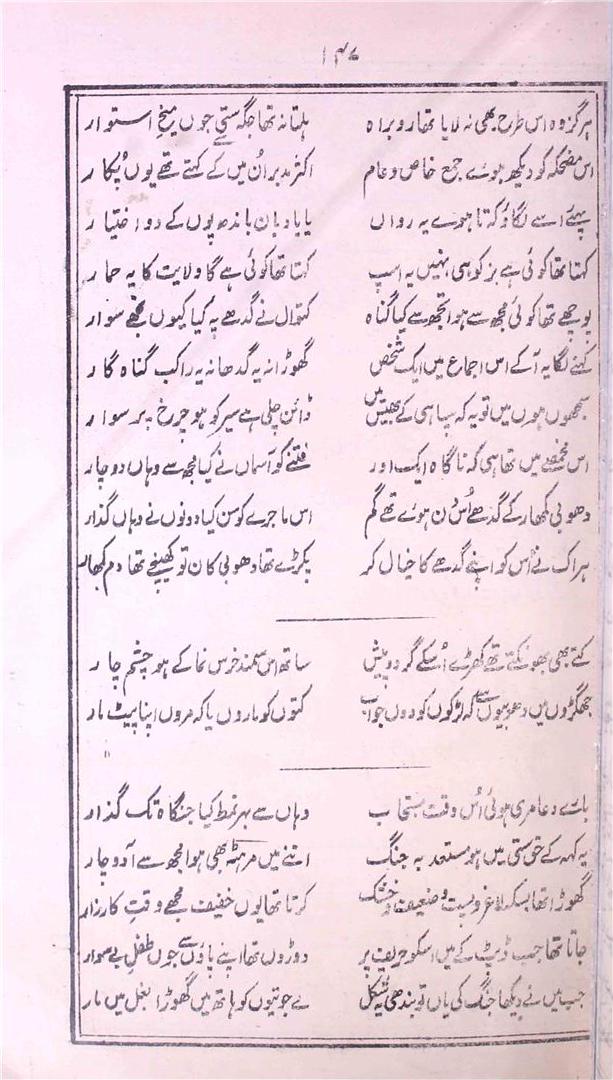 ۱۴۷
ہر گز وہ اس طرح بھی نہ لایا تھا رو براہ ہلتا نہ تھا جگہ ستی جوں میخ استوار
اس مضحکہ کو دیکھ ہوئے جمع خاص و عام اکثر مدبر ان میں کے کہتے تھے یوں پکار
پہئے اسے لگاؤ کہ تا ہووے یہ رواں یا بادبان باندھ پوں کے دو اختیار
کہتا تھا کوئی ہے بز کوہی نہیں یہ اسپ کہتا تھا کوئی ہے گا ولایت کا یہ حمار
پوچھے تھا کوئی مجھ سے ہوا تجھ سے کیا گناہ کتوال نے گدھے پہ کیا کیوں تجھے سوار
کہنے لگا یہ آ کے اس اجماع میں ایک شخص گھوڑا نہ یہ گدھا نہ یہ راکب گناہ گار
سمجھوں ہوں میں تو یہ کہ سپاہی کے بھیس میں ڈائن چلی ہے سیر کو ہو چرخ پر سوار
اس مخمصے میں تھا ہی کہ ناگاہ ایک اور فتنے کو آسماں نے کیا مجھ سے وہاں دو چار
دھوبی کمھار کے گدھے اس دن ہوئے تھے گم اس ماجرے کو سن کیا دونوں نے وہاں گذار
ہر اک نے اس کو اپنے گدھے کا خیال کر پکڑے تھا دھوبی کان تو کھینچے تھا دم کمھار
کتے بھی بھونکتے تھے کھڑے اسکے گرد و پیش ساتھ اس سمند خرس نما کے ہو چشم چار
جھگڑوں میں دھوبیوں سے کہ لڑکوں کو دوں جواب کتوں کو ماروں یا کہ مروں اپنا پیٹ مار
بارے دعا مری ہوئی اس وقت مستجاب وہاں سے بہر نمط کیا جنگاہ تک گذار
یہ کہہ کے حق ستی میں ہو مستعد بہ جنگ اتنے میں مرہٹہ بھی ہوا مجھ سے آ دو چار
گھوڑا تھا بسکہ لاغر و پست و ضعیف و خشک کرتا تھا یوں خفیف مجھے وقت کارزار
جاتا تھا جب ڈپٹ کے میں اسکو حریف پر دوڑوں تھا اپنے پاؤں سے جوں طفل نے سوار
جب میں نے دیکھا جنگ کی یاں تو بندھی یہ شکل لے جوتیوں کو ہاتھ میں گھوڑا بغل میں مار